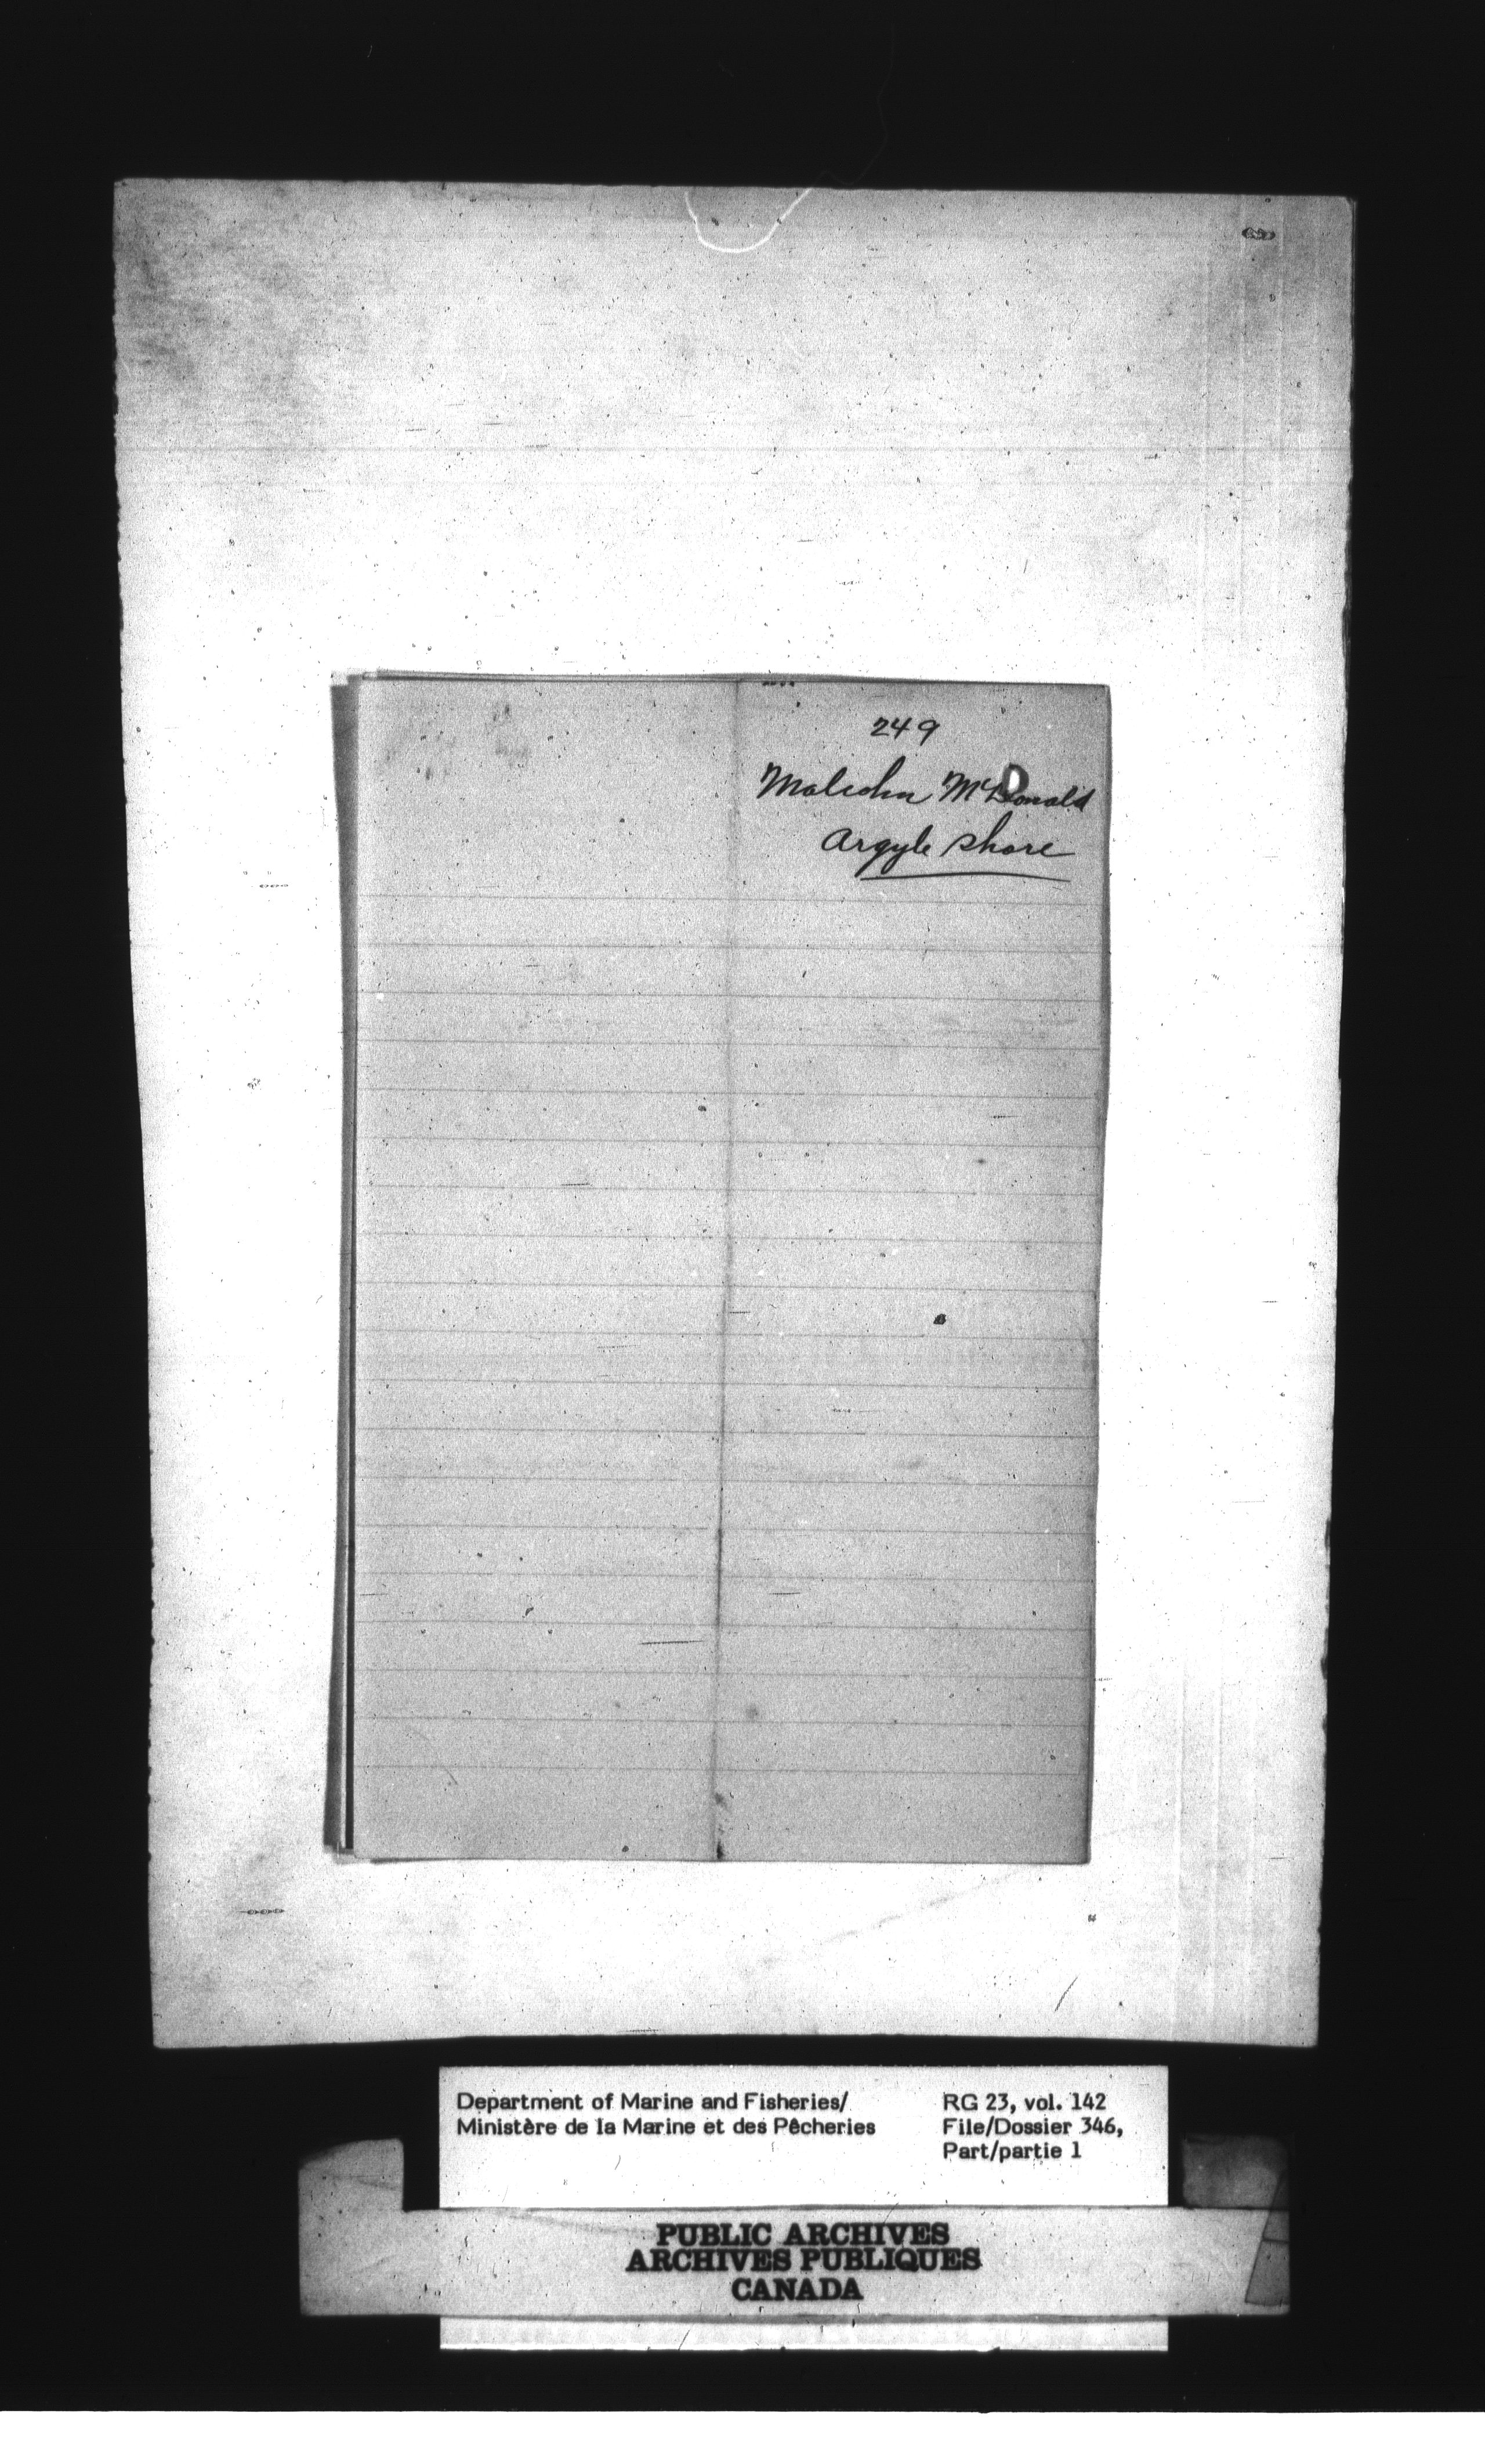 249
Malcolm McDonald
Argyle Shore
Department of Marine and Fisheries/
Ministère de la Marine et des Pêcheries
RG 23, vol. 142
File/Dossier 346,
Part/partie 1
PUBLIC ARCHIVES
ARCHIVES PUBLIQUES
CANADA